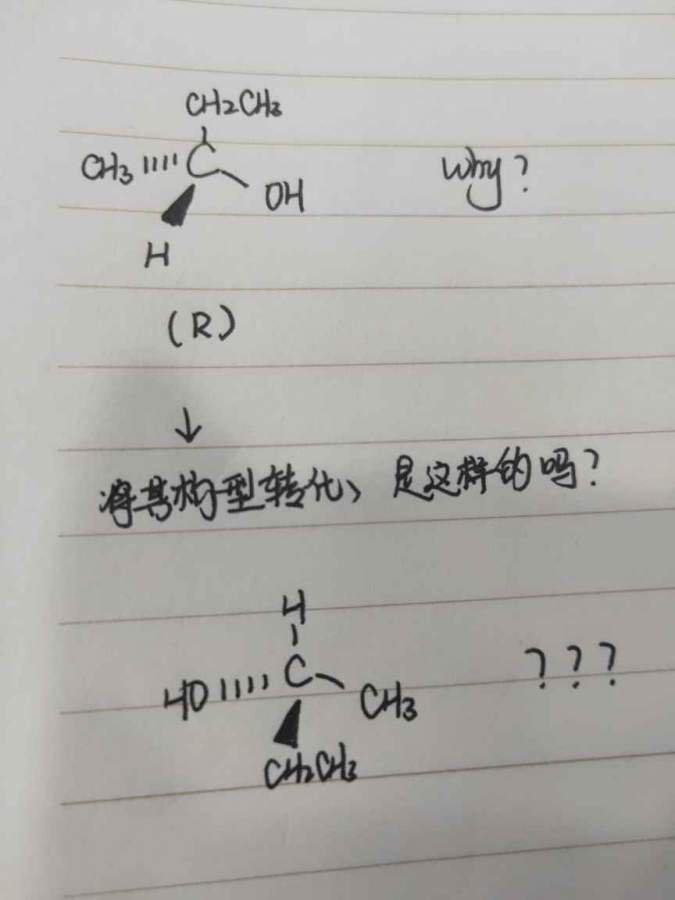 CH2CH3
CH3 C OH why?
H
(R)
↓
将其构型转化、是这样的吗?
H
HO C CH3 ???
CH2CH3